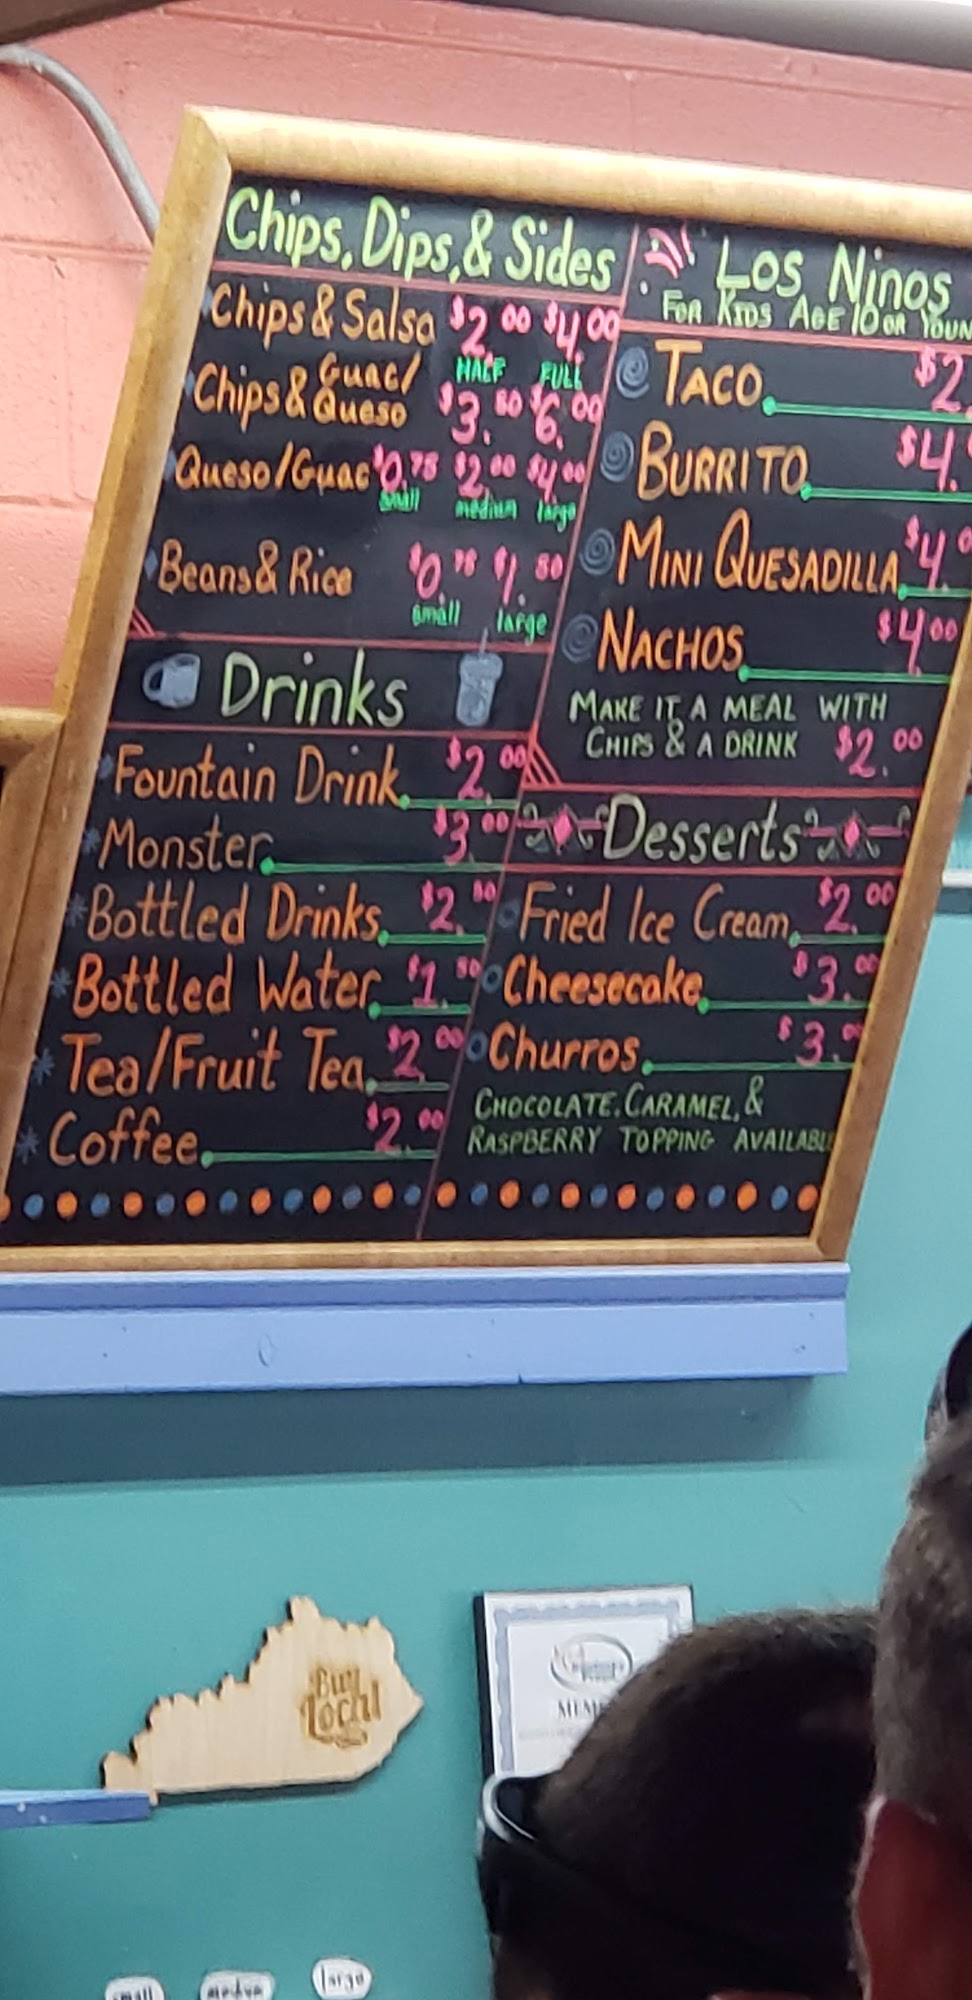 Chips, Dips, & Sides
Chips & Salsa $2.00 $4.00
HALF FULL
Chips & Guac/
Queso $3.50 $6.00
Queso/Guac $0.75 $2.00 $4.00
small medium large
Beans & Rice $0.75 $1.50
small large
Drinks
Fountain Drink $2.00
Monster $3.00
Bottled Drinks $2.50
Bottled Water $1.50
Tea/Fruit Tea $2.00
Coffee $2.00
Los Ninos
FOR KIDS AGE 10 OR YOUN
TACO $2.
BURRITO $4.
MINI QUESADILLA $4.0
NACHOS $4.00
MAKE IT A MEAL WITH
CHIPS & A DRINK $2.00
Desserts
Fried Ice Cream $2.00
Cheesecake $3.00
Churros $3.00
CHOCOLATE, CARAMEL, &
RASPBERRY TOPPING AVAILABLE
Buy
Local
MEM
small medium large